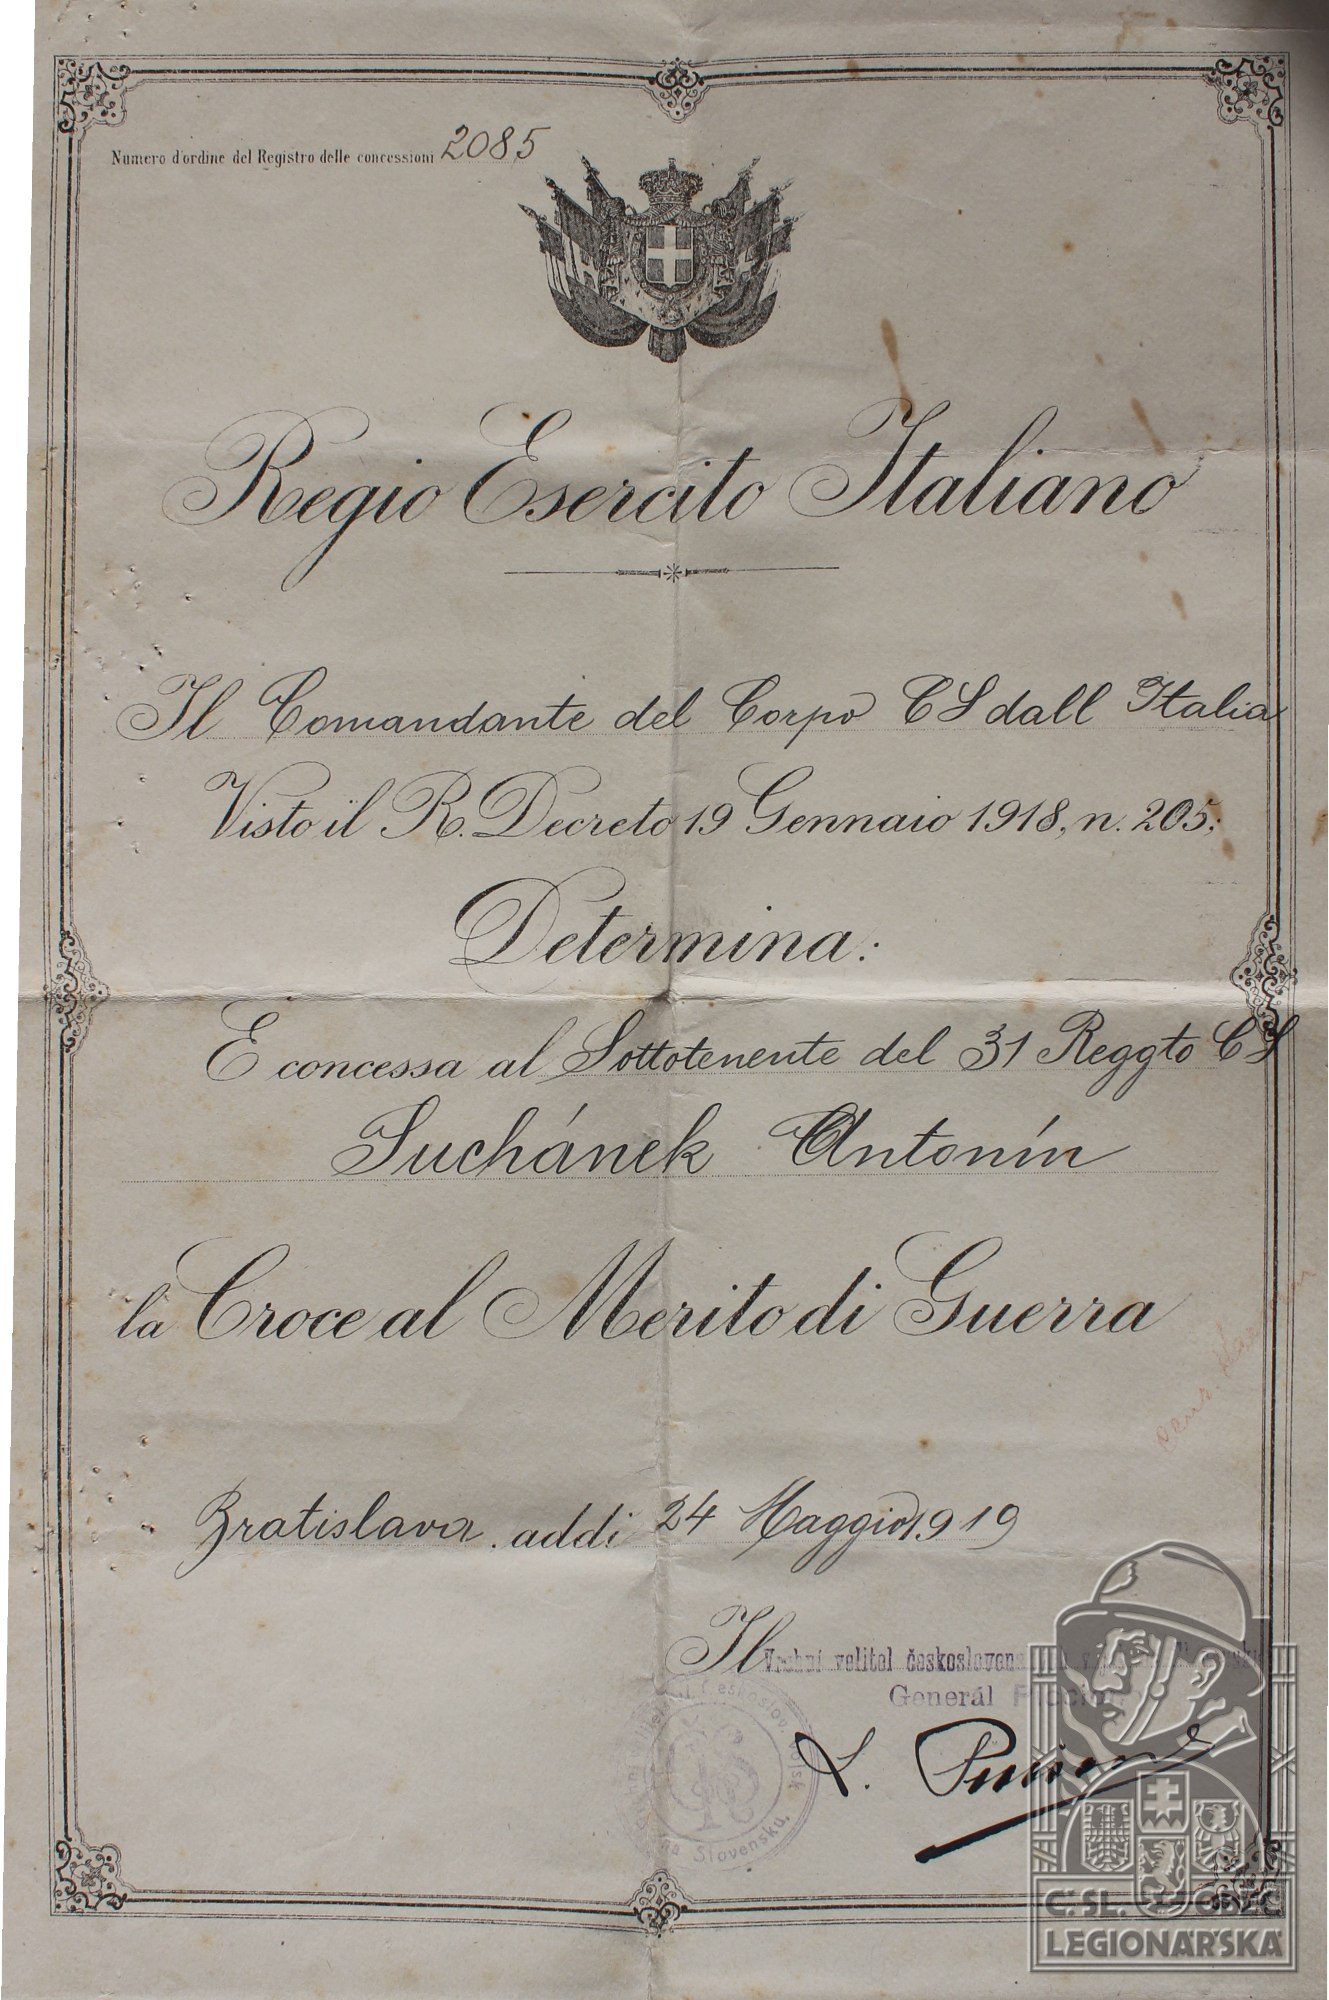 Numero d'ordine del Registro delle concessioni 2085
Regio Esercito Italiano
Il Comandante del Corpo CS dall Italia
Visto il R. Decreto 19 Gennaio 1918, n. 205;
Determina:
E concessa al Sottotenente del 31 Reggto CS
Suchánek Antonín
la Croce al Merito di Guerra
Bratislava, addi 24 Maggio 1919
Il Vrchní velitel
Generál
L.
Českoslov. vojsk
na Slovensku.
Č.SL. OBEC
LEGIONÁŘSKÁ